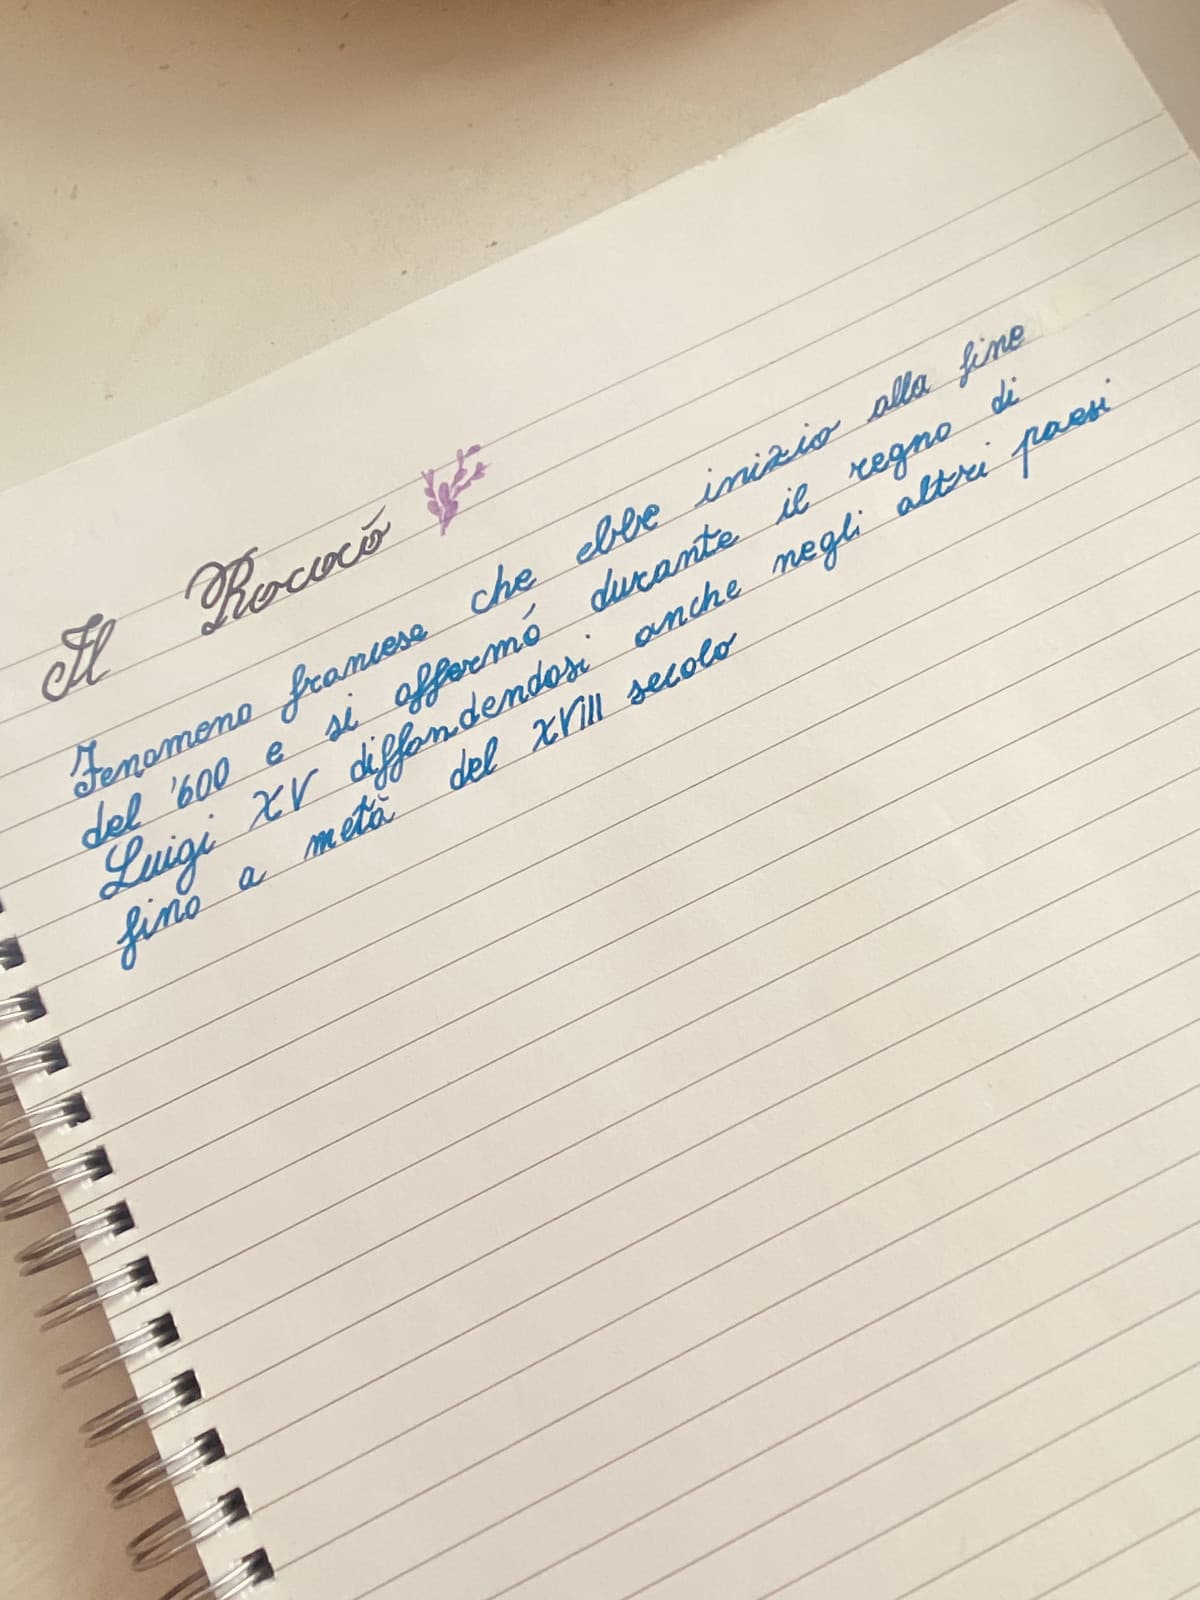 Il Rococó
Fenomeno francese che ebbe inizio alla fine
del '600 e si affermó durante il regno di
Luigi XV diffondendosi anche negli altri paesi
fino a metà del XVIII secolo